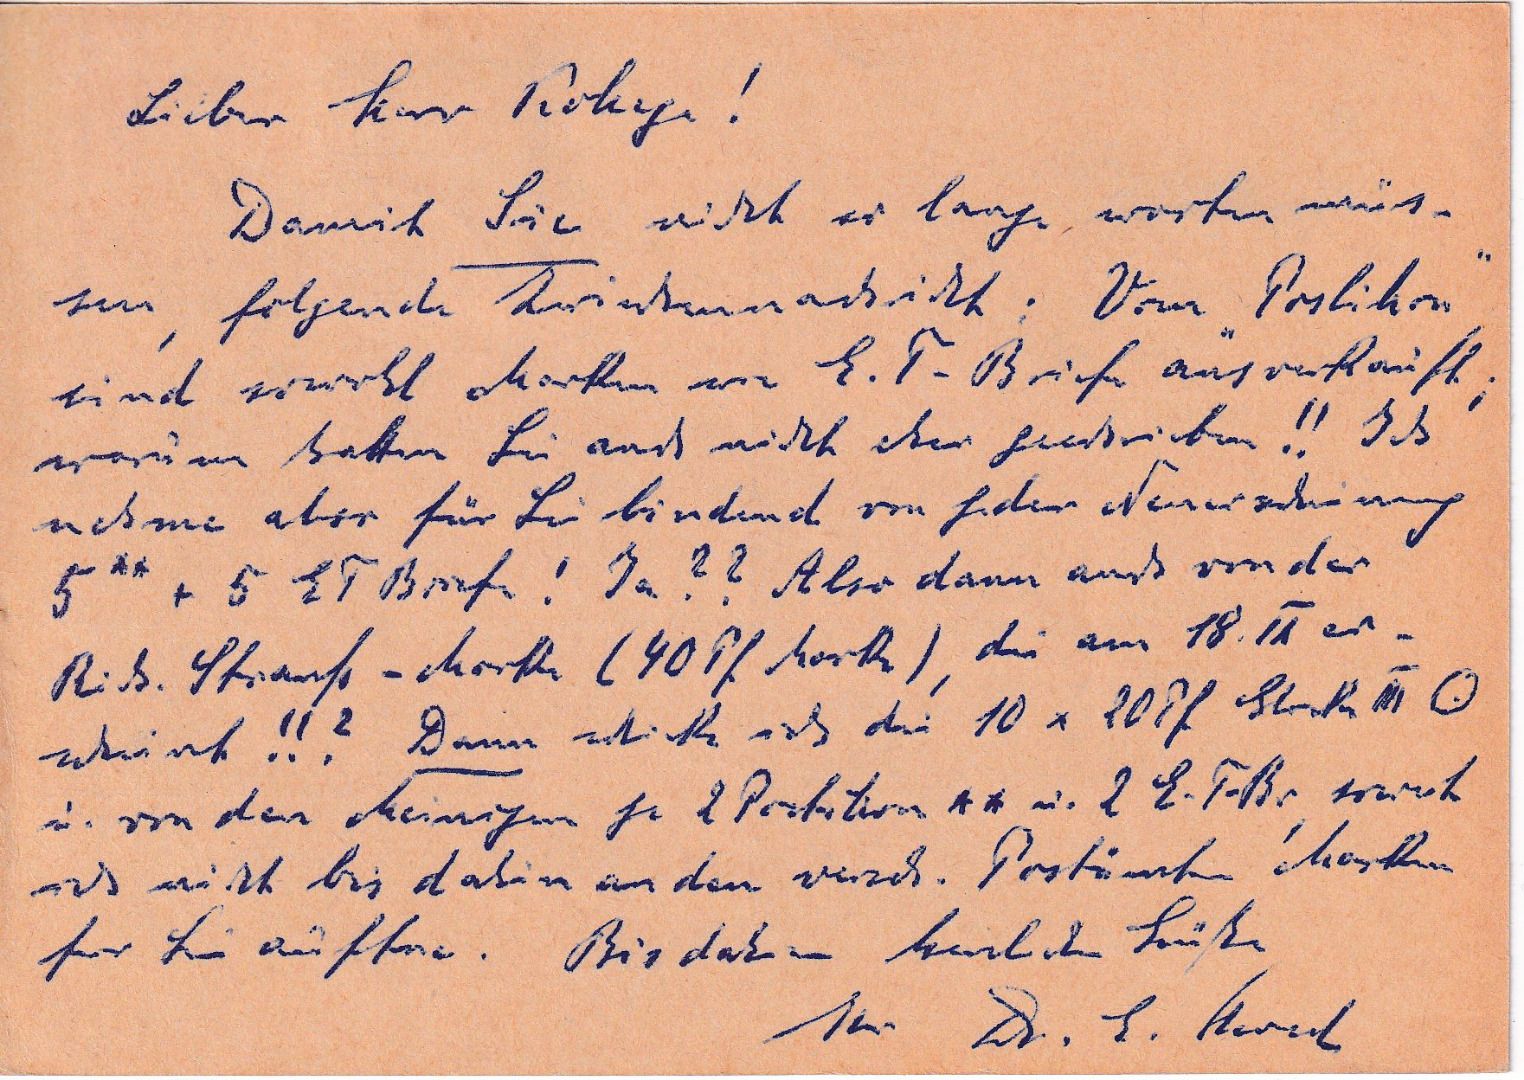 Lieber Herr Kollege!
Damit Sie nicht so lange warten müs-
sen, folgende Zwischennachricht: Vom „Postillion"
sind sowohl Marken wie E.T-Briefe ausverkauft;
warum hatten Sie auch nicht eher geschrieben!! Ich
nehme aber für Sie bindend von jeder Neuerscheinung
5** + 5 ET Briefe! Ja?? Also dann auch von der
Rich. Strauß-Marke (40 Pf Marke), die am 18. IX er-
scheint!!? Dann schicke ich die 10 x 20 Pf
u. von den Meinigen je 2 Postillion ** u. 2 E.-T-Br, soweit
ich nicht bis dahin an den versch. Postämtern Marken
für Sie auftue. Bis dahin herzliche Grüße
Ihr Dr. E.